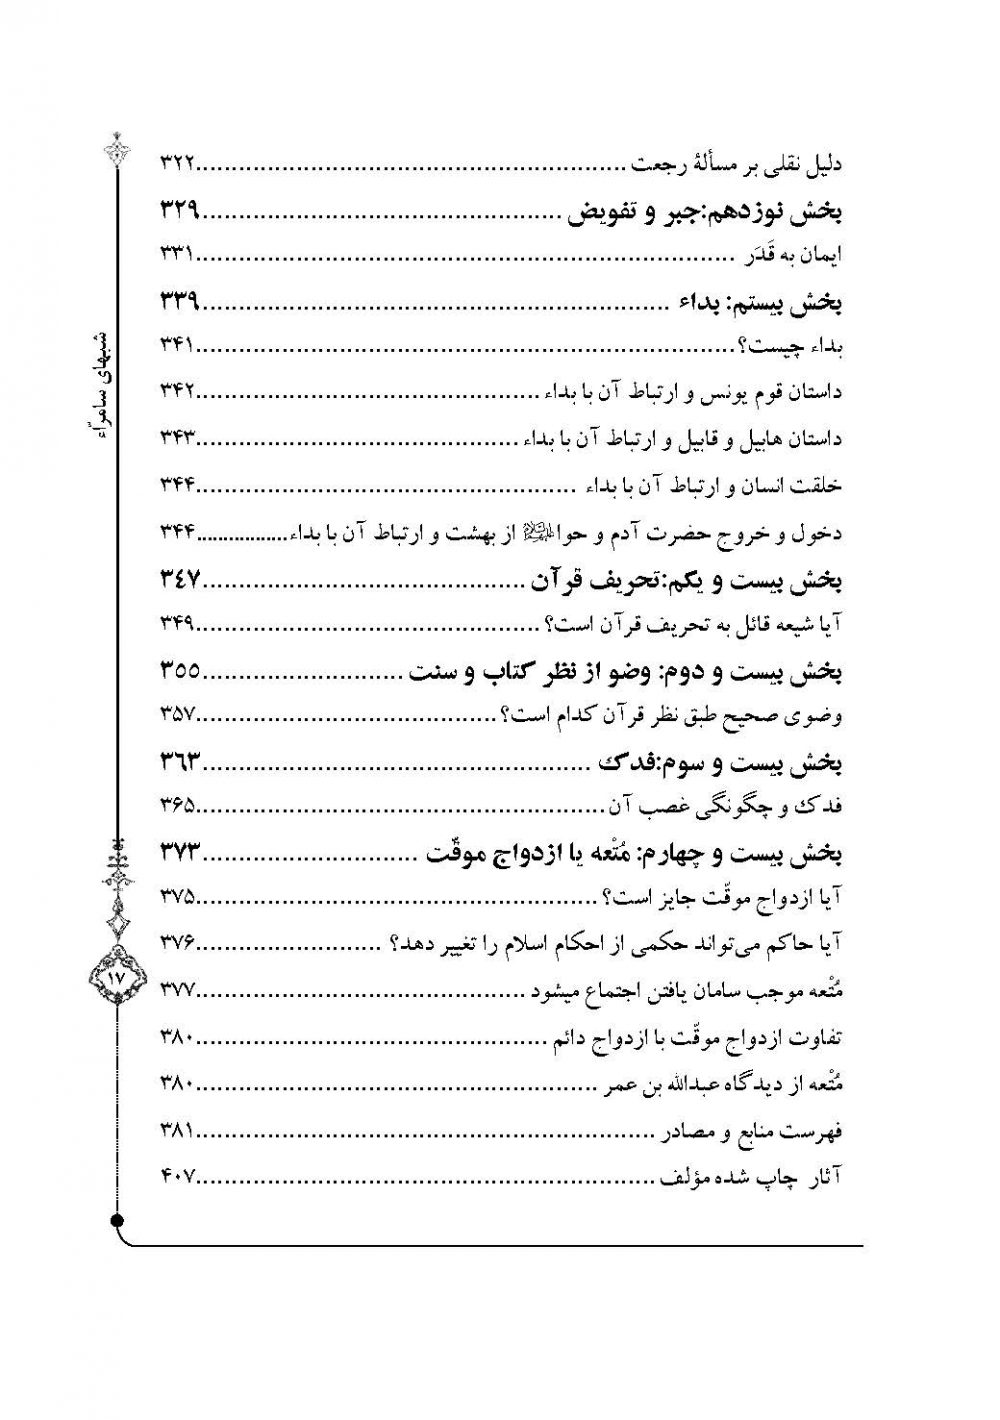 دلیل نقلی بر مسألهٔ رجعت ............................................................۳۲۲
بخش نوزدهم:جبر و تفویض ..................................................۳۲۹
ایمان به قَدَر ...........................................................................۳۳۱
بخش بیستم: بداء .................................................................۳۳۹
بداء چیست؟...........................................................................۳۴۱
داستان قوم یونس و ارتباط آن با بداء ................................................۳۴۲
داستان هابیل و قابیل و ارتباط آن با بداء .............................................۳۴۳
خلقت انسان و ارتباط آن با بداء .....................................................۳۴۴
دخول و خروج حضرت آدم و حوا از بهشت و ارتباط آن با بداء.................۳۴۴
بخش بیست و یکم:تحریف قرآن .............................................۳۴۷
آیا شیعه قائل به تحریف قرآن است؟ ................................................۳۴۹
بخش بیست و دوم: وضو از نظر کتاب و سنت ............................۳۵۵
وضوی صحیح طبق نظر قرآن کدام است؟ ..........................................۳۵۷
بخش بیست و سوم:فدک ......................................................۳۶۳
فدک و چگونگی غصب آن .........................................................۳۶۵
بخش بیست و چهارم: مُتْعه یا ازدواج موقّت ..............................۳۷۳
آیا ازدواج موقّت جایز است؟ ........................................................۳۷۵
آیا حاکم می‌تواند حکمی از احکام اسلام را تغییر دهد؟ ..........................۳۷۶
مُتْعه موجب سامان یافتن اجتماع میشود ..............................................۳۷۷
تفاوت ازدواج موقّت با ازدواج دائم .................................................۳۸۰
مُتْعه از دیدگاه عبدالله بن عمر ........................................................۳۸۰
فهرست منابع و مصادر ................................................................۳۸۱
آثار چاپ شده مؤلف ................................................................۴۰۷
شبهای سامرّاء
۱۷